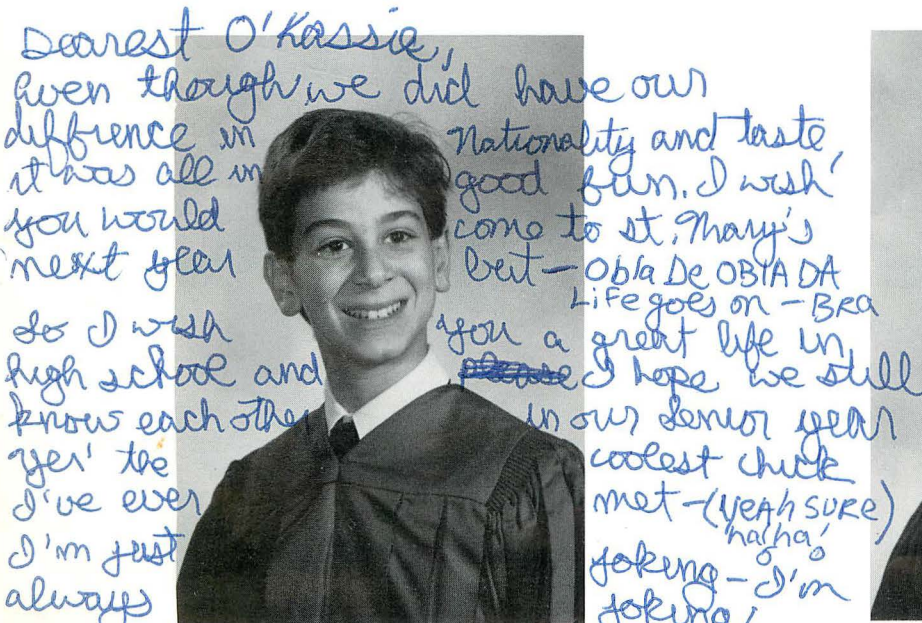 Dearest O'Kassie,
Even though we did have our
diffrence in Nationality and taste,
it was all in good fun. I wish
you would come to st. Mary's
next year but - Obla De OBlA DA
Life goes on - BRA
So I wish you a great life in
high school and I hope we still
know each other in our senior year
yer' the coolest chick
I've ever met - (yeAh SURE)
ha! ha!
I'm just joking - I'm
always joking!